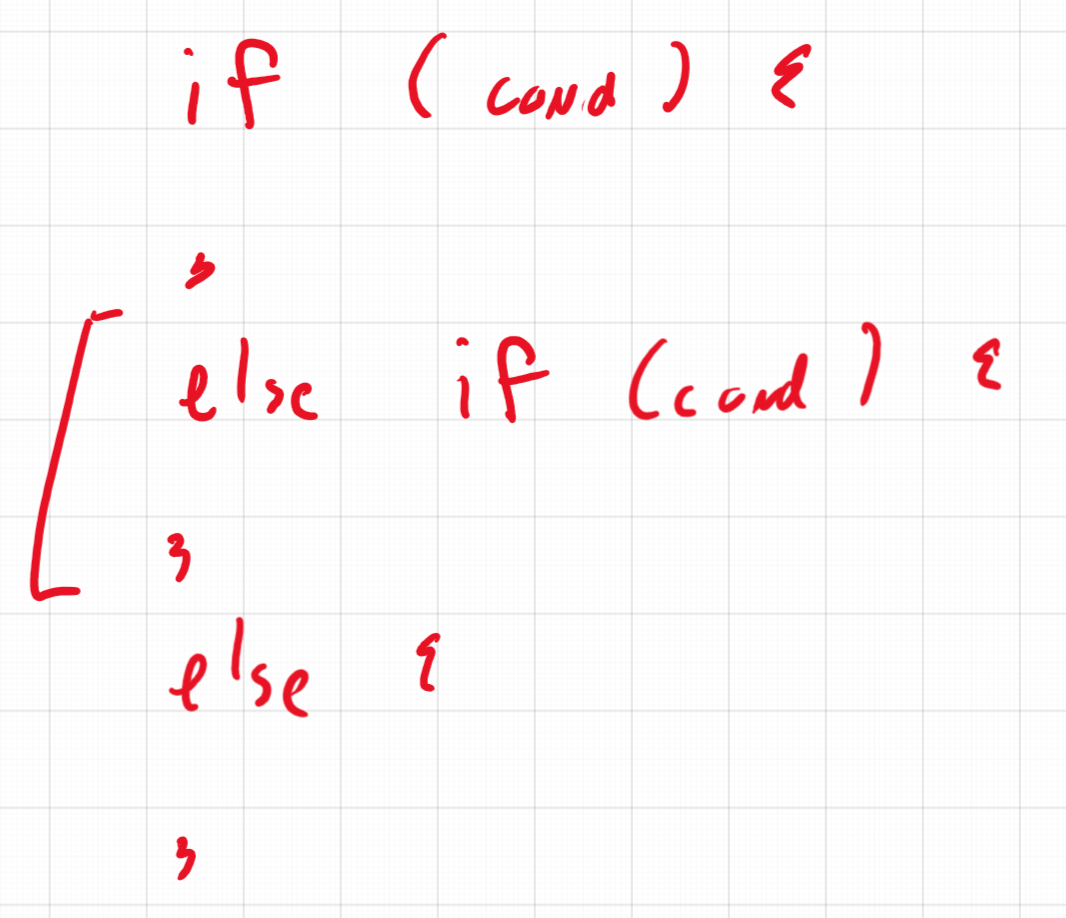 if (cond) {
}
else if (cond) {
}
else {
}